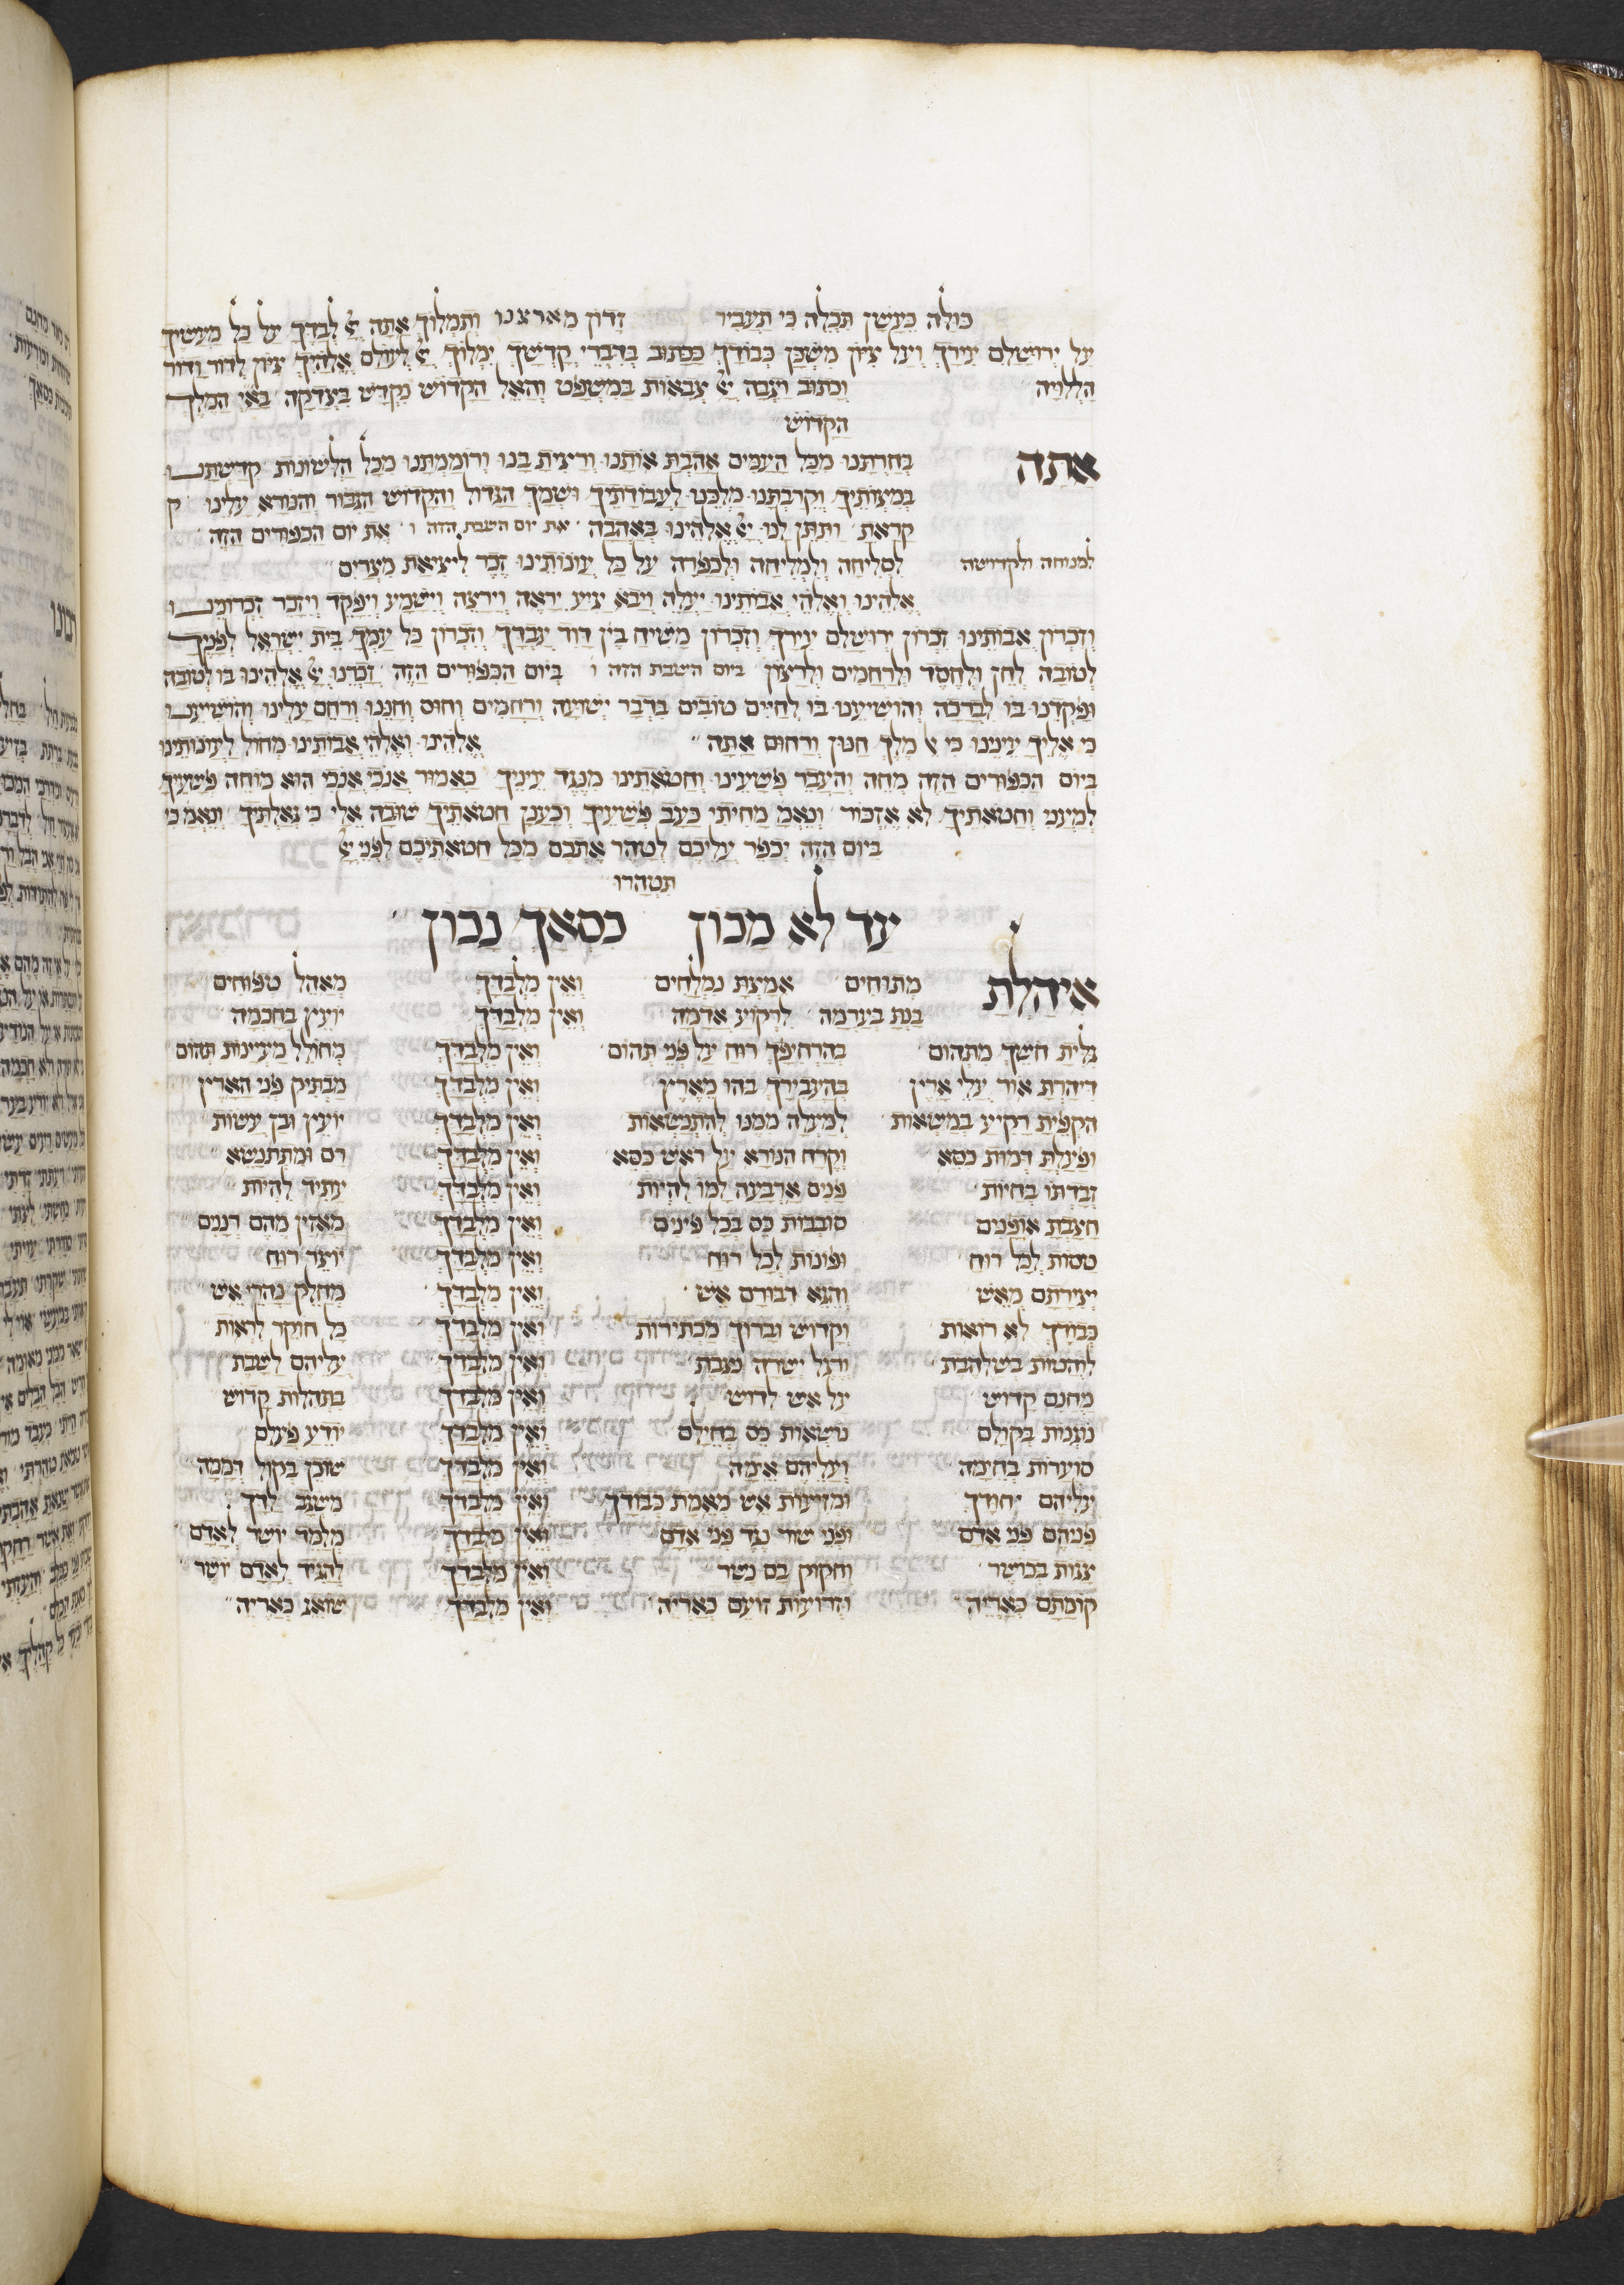 כולה כעשן תכלה כי תעביר זדון מארצנו ותמלוך אתה יי לבדך על כל מעשיך
על ירושלם עירך ועל ציון משכן כבודך ככתוב בדברי קדשך ימלוך יי לעולם אלהיך ציון לדור ודור
הללויה וכתוב ויגבה יי צבאות במשפט והאל הקדוש נקדש בצדקה בא"י המלך
הקדוש
אתה בחרתנו מכל העמים אהבת אותנו ורצית בנו ורוממתנו מכל הלשונות קדשתנו
במצותיך וקרבתנו מלכנו לעבודתיך ושמך הגדול והקדוש הגבור והנורא עלינו ק
קראת ותתן לנו יי אלהינו באהבה את יום השבת הזה ו את יום הכפורים הזה
למנוחה ולקדושה לסליחה ולמחילה ולכפרה על כל עונותינו זכר ליציאת מצרים
אלהינו ואלהי אבותינו יעלה ויבא יגיע יראה וירצה וישמע ויפקד ויזכר זכרונינו
וזכרון אבותינו זכרון ירושלם עירך וזכרון משיח בן דוד עבדך וזכרון כל עמך בית ישראל לפניך
לטובה לחן ולחסד ולרחמים ולרצון ביום השבת הזה ו ביום הכפורים הזה זכרנו יי אלהינו בו לטובה
ופקדנו בו לברכה והושיענו בו לחיים טובים בדבר ישועה ורחמים וחוס וחננו ורחם עלינו והושיענו
כי אליך עינינו כי מלך חנון ורחום אתה אלהינו ואלהי אבותינו מחול לעונותינו
ביום הכפורים הזה מחה והעבר פשעינו וחטאתינו מנגד עיניך כאמור אנכי אנכי הוא מוחה פשעיך
למעני וחטאתיך לא אזכור ונאמ מחיתי כעב פשעיך וכענן חטאתיך שובה אלי כי גאלתיך ונאמ כי
ביום הזה יכפר עליכם לטהר אתכם מכל חטאתיכם לפני יי
תטהרו
עד לא מכון כסאך נכון
איהלת מתוחים אמצת נמלחים ואין מלבדך מאהל טפוחים
בנת בערמה לרקוע אדמה ואין מלבדך יועץ בחכמה
גלית חשך מתהום בהרחיפך רוח על פני תהום ואין מלבדך מחולל מעיינות תהום
דיהרת אור עלי ארץ בהעבירך בהו מארץ ואין מלבדך מבתיק פני הארץ
הקפית רקיע במשאות למעלה ממנו להתנשאות ואין מלבדך יועץ ובן עשות
ופעלת דמות כסא וקרח הנורא על ראש כסא ואין מלבדך רם ומתנשא
זבדתו בחיות פנים ארבעה למו להיות ואין מלבדך עתיד להיות
חצבת אופנים סובבות כס בכל פינים ואין מלבדך מאזין מהם רננים
טסות לכל רוח ופונות לכל רוח ואין מלבדך יוצר רוח
יצירתם מאש והגא דבורם אש ואין מלבדך מחלק נהרי אש
כבודך לא רואות וקדוש וברוך מכתירות ואין מלבדך כל חוקר לראות
לוהטות בשלהבת ורגל ישרה נצבת ואין מלבדך עליהם לשבת
מחנם קדוש על אש לדוש ואין מלבדך בתהלות קדוש
נוענות בקולם נושאות כס בחילם ואין מלבדך יודע פעלם
סוערות בחימה ועליהם אימה ואין מלבדך שוכן בקול דממה
עליהם יחודך ומזיעות אש מאמת כבודך ואין מלבדך משגב לדך
פניהם פני אדם ופני שור נגד פני אדם ואין מלבדך מלמד יושר לאדם
צגות בכושר וחקוק בם נשר ואין מלבדך להגיד לאדם יושר
קומתם כאריה וזרועות זועם כאריה ואין מלבדך שואג כאריה